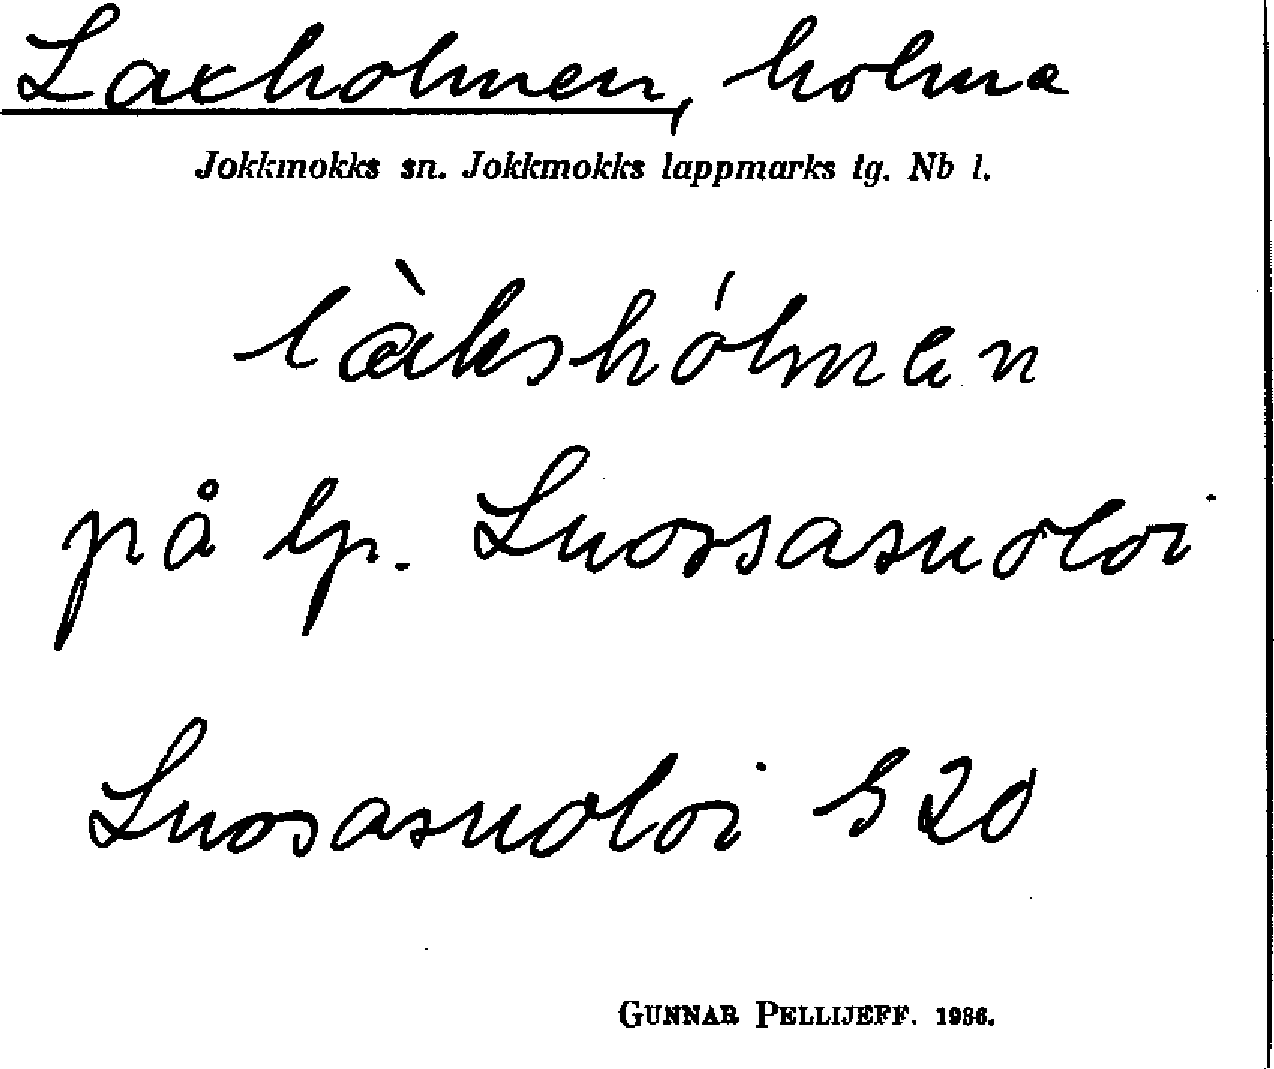 Laxholmen, holme
Jokkmokks sn. Jokkmokks lappmarks tg. Nb l.
làkshólmen
på lp. Luossasuoloi
Luosasuoloi h 20
GUNNAR PELLIJEFF. 1936.